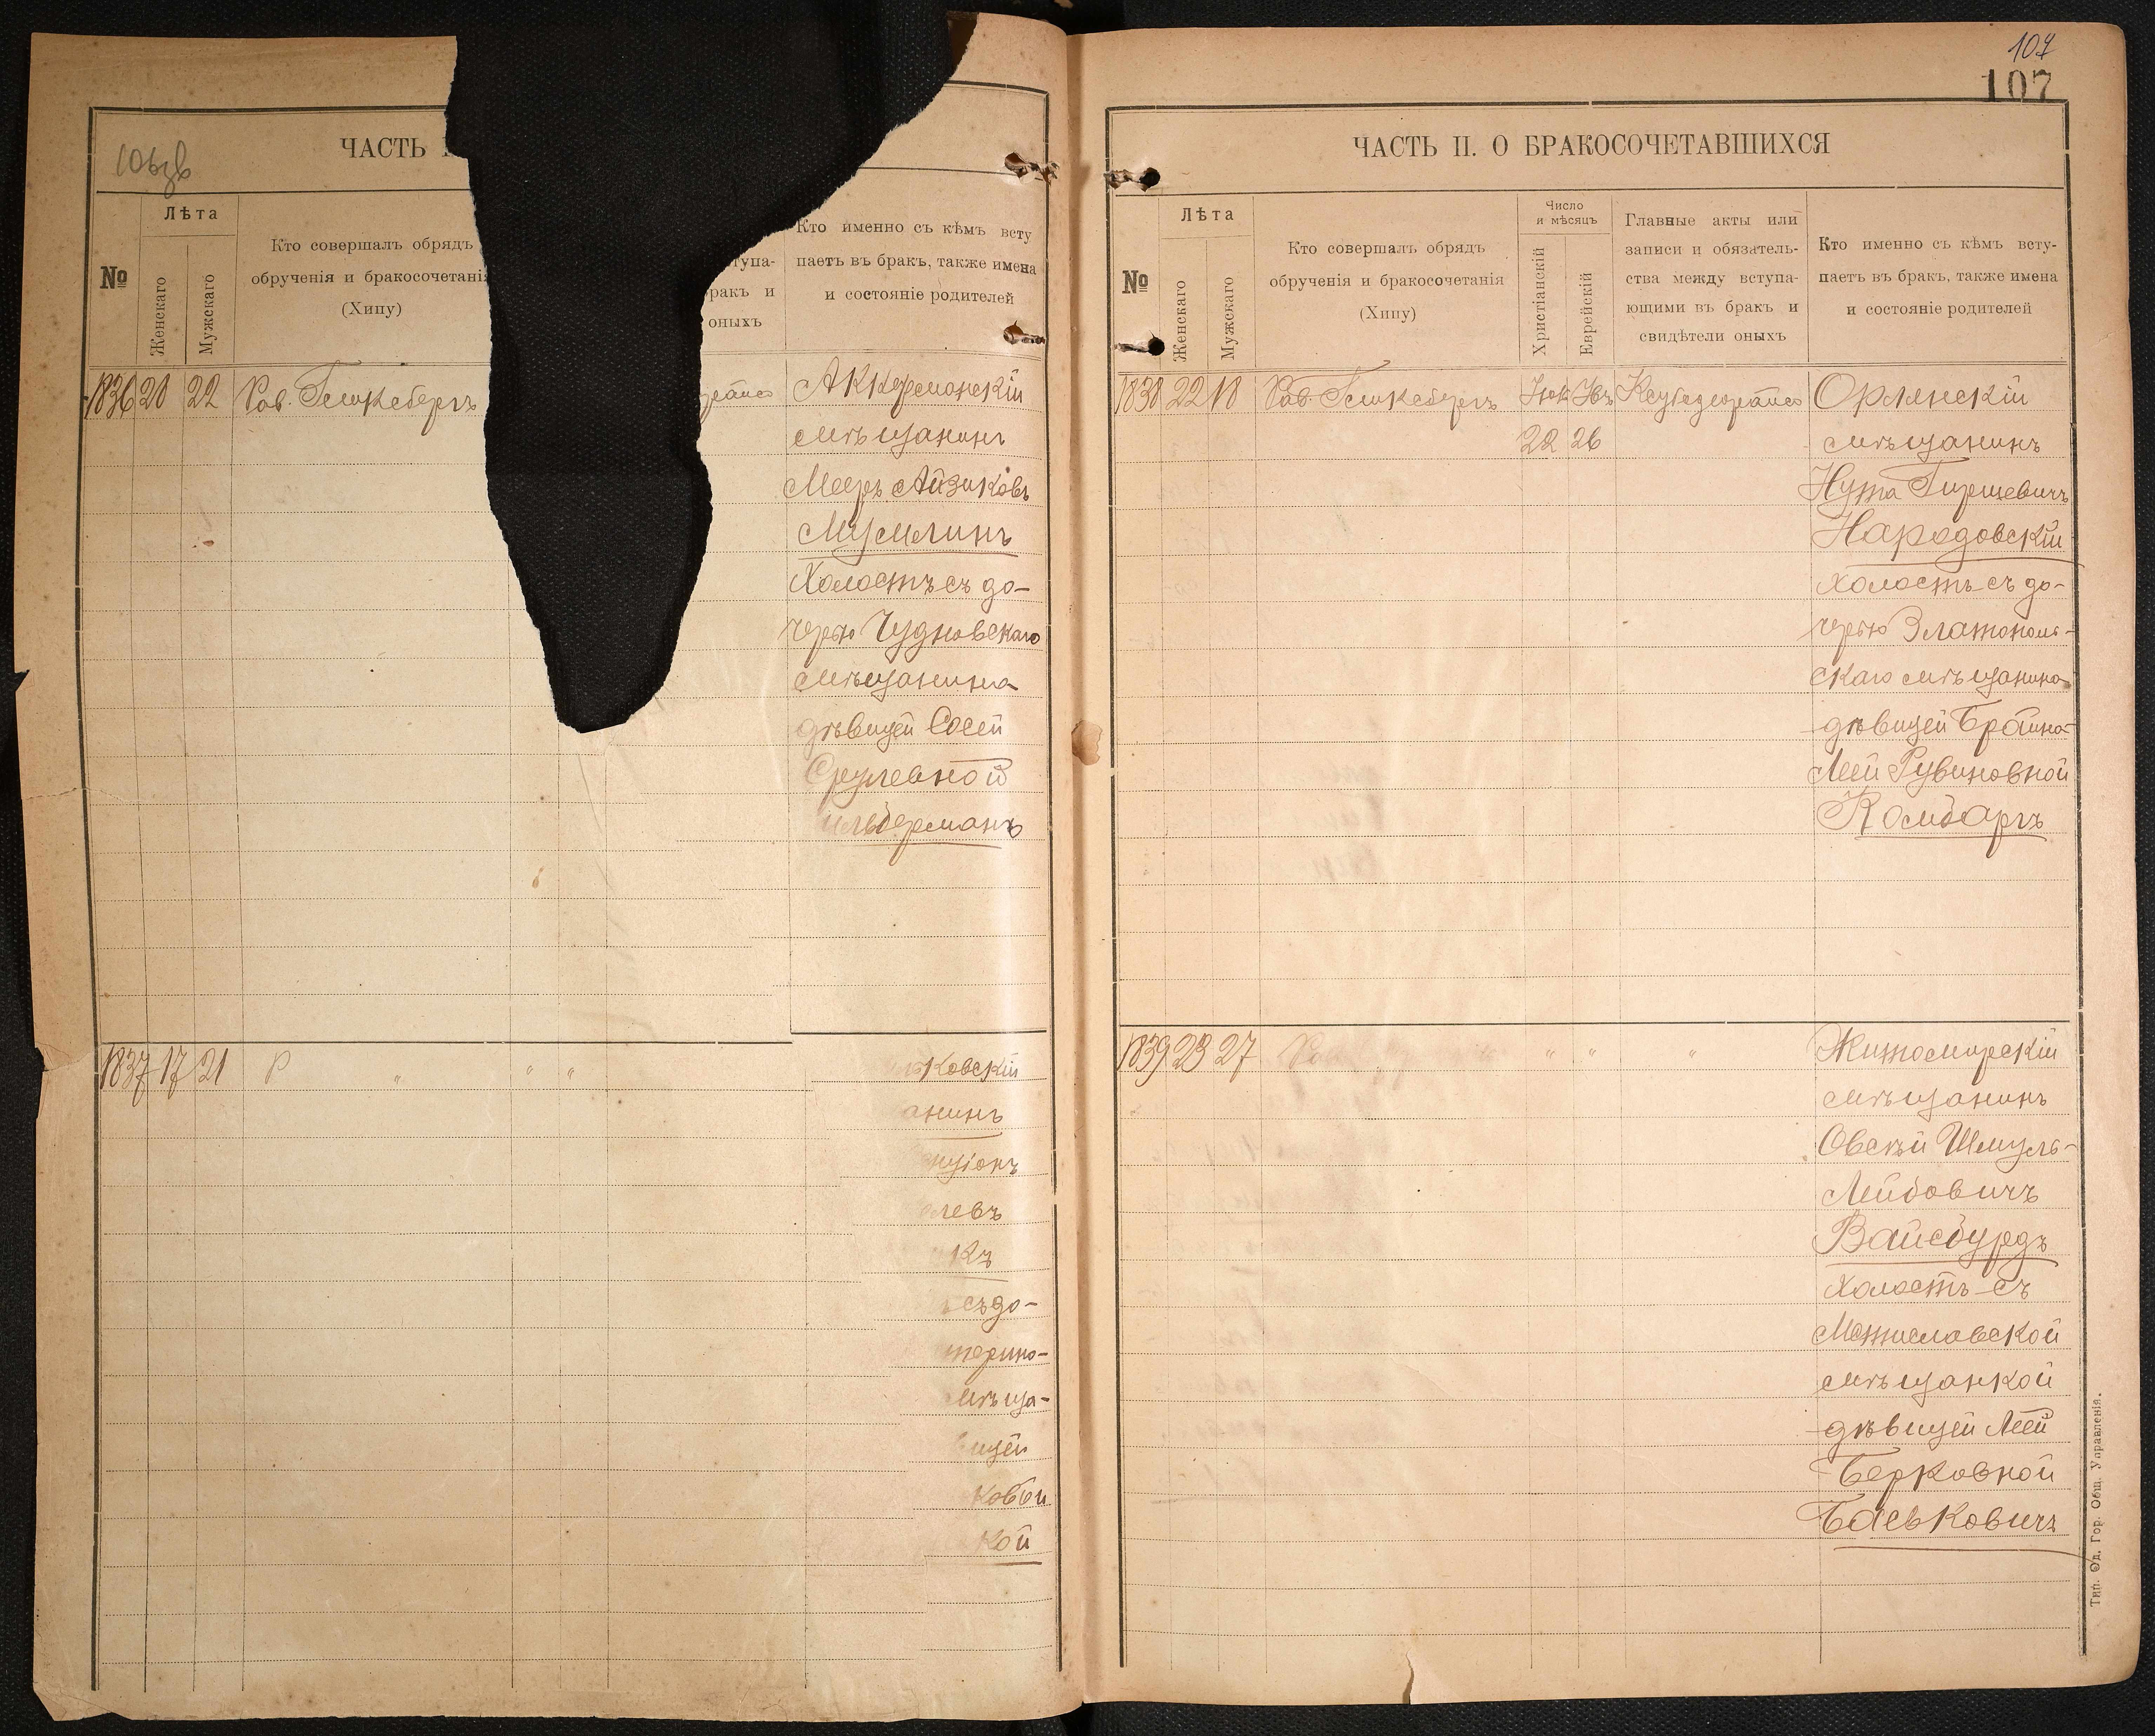 106зв
ЧАСТЬ
№
Лѣта
Женскаго
Мужскаго
Кто совершалъ обрядъ
обрученія и бракосочетанія
(Хипу)
ступа-
бракъ и
оныхъ
Кто именно съ кѣмъ всту
паетъ въ бракъ, также имена
и состояніе родителей
1836 20 22 Рав. Гликсбергъ
Аккерманскій
мѣщанинъ
Мееръ Айзиковъ
Мусмлинъ
холостъ съ до-
черью Чудновскаго
мѣщанина
дѣвицей Сосей
Срулевной
ильберманъ
1837 17 21 Р " " "
ковскій
анинъ
нціонъ
левъ
къ
съ до-
терино-
мѣща-
ицей
ковой
кой
107
107
ЧАСТЬ II. О БРАКОСОЧЕТАВШИХСЯ
№
Лѣта
Женскаго
Мужскаго
Кто совершалъ обрядъ
обрученія и бракосочетанія
(Хипу)
Число
и мѣсяцъ
Христіанскій
Еврейскій
Главные акты или
записи и обязатель-
ства между вступа-
ющими въ бракъ и
свидѣтели оныхъ
Кто именно съ кѣмъ всту-
паетъ въ бракъ, также имена
и состояніе родителей
1838 22 18 Рав. Гликсбергъ
22 26
Орлянскій
мѣщанинъ
Нута Гиршевичъ
Народовскій
холостъ съ до-
черью Златополь-
скаго мѣщанина
дѣвицей Брайна-
Леей Рувиновной
Комбаръ
1839 23 27 Рав " " " "
Житомирскій
мѣщанинъ
Овсѣй Шмуль-
Лейбовичъ
Вайсбурдъ
холостъ съ
Мстиславской
мѣщанкой
дѣвицей Леей
Берковной
Баськовичъ
Тип. Од. Гор. Общ. Управленія.